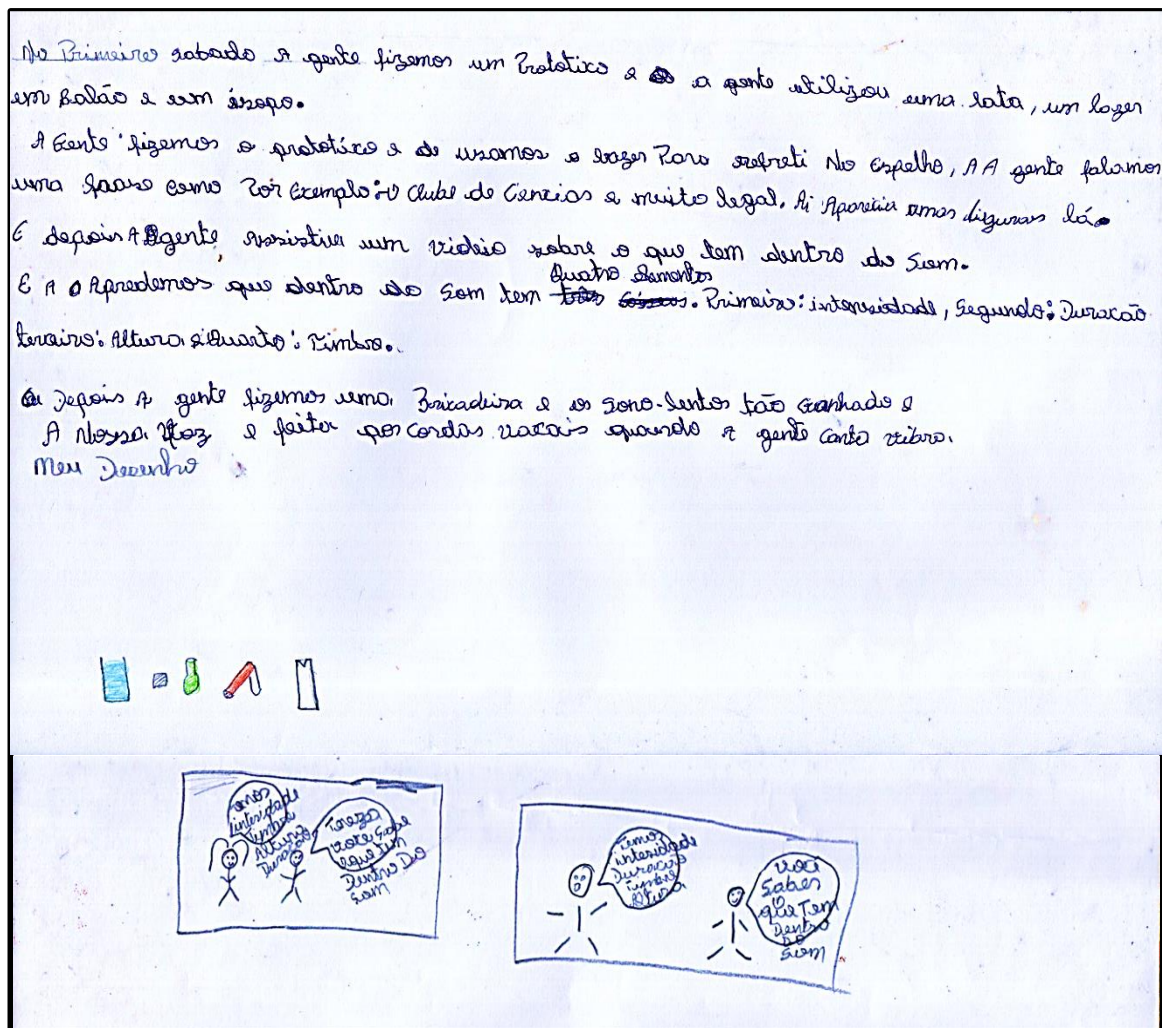 No Primeiro sabado A gente fizemos um Prototico e a gente utilizou uma lata, um lazer
um Balão e um
A Gente fizemos o prototico e de usamos o lazer Para refreti No Espelho, A A gente falamos
uma frase como Por Exemplo: o Clube de Ciencias e muito legal. Ai Aparecia umas figuras lá
E depois A gente assistiu um vidio sobre o que tem dentro do Som.
E A Apredemos que dentro do Som tem Quatro Lementos. Primeiro: intensidade, Segundo: Duracão
terceiro: Altura e Quarto: Timbro.
Depois A gente fizemos uma Bricadeira e os Sono-lentos tão Ganhado e
A Nossa Voz e feita por cordas vacais quando A gente canta vibra.
Meu Desenho
temos
intensidade
timbre
Altura
Duração
Tereza
você Sabe
o que tem
Dentro Do
Som
Temos
intensidade
Duração
timbre
Altura
você
Saber
o
que Tem
Dentro
Do
Som